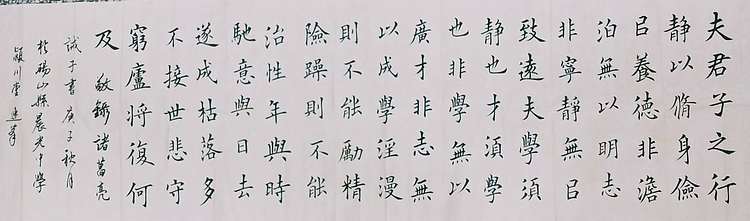 夫君子之行
静以脩身儉
㠯養德非澹
泊無以明志
非寧靜無㠯
致遠夫學須
静也才須學
也非學無以
廣才非志無
以成學淫漫
則不能勵精
險躁則不能
治性年與時
馳意與日去
遂成枯落多
不接世悲守
窮廬将復何
及 敬錄諸葛亮
誡子書 庚子秋月
於碭山縣晨光中學
潁川堂